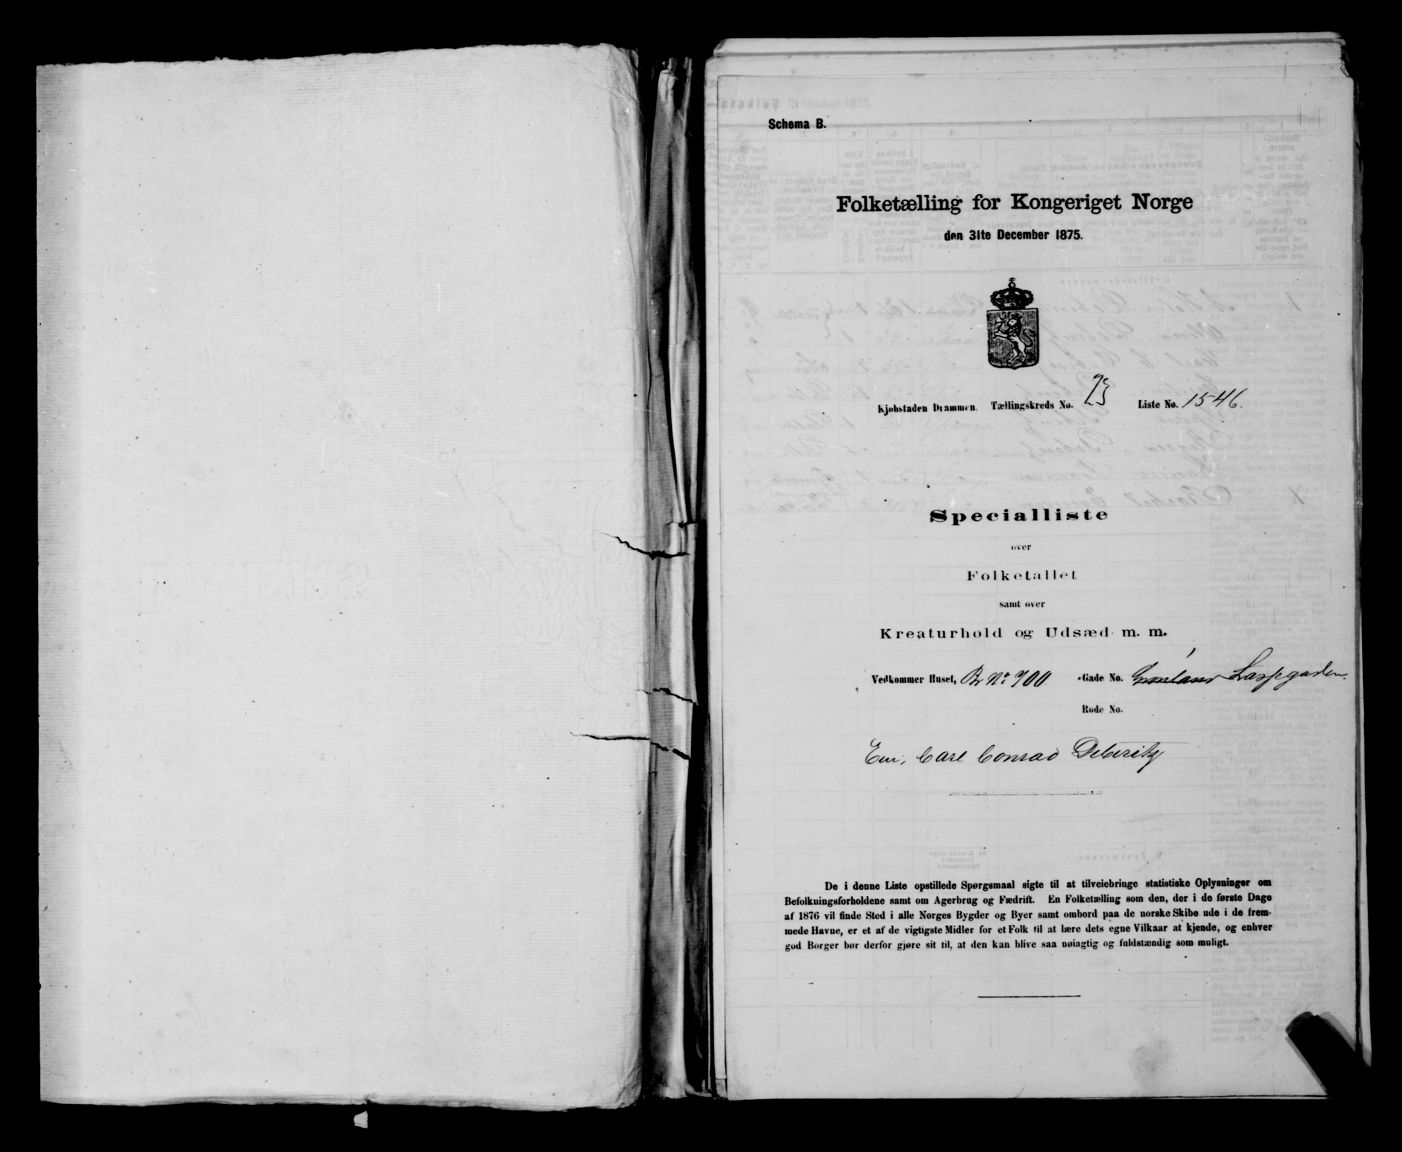 Schema B.
Folketælling for Kongeriget Norge
den 31te December 1875.
Kjøbstaden Drammen. Tællingskreds No. 23 Liste No. 1546.
Specialliste
over
Folketallet
samt over
Kreaturhold og Udsæd m. m.
Vedkommer Huset, Br No. 900 Gade No.
Rode No.
Eier, Carl Conrad Deberitz
De i denne Liste opstillede Spørgsmaal sigte til at tilveiebringe statistiske Oplysninger om
Befolkningsforholdene samt om Agerbrug og Fædrift. En Folketælling som den, der i de første Dage
af 1876 vil finde Sted i alle Norges Bygder og Byer samt ombord paa de norske Skibe ude i de frem-
mede Havne, er et af de vigtigste Midler for et Folk til at lære dets egne Vilkaar at kjende, og enhver
god Borger bør derfor gjøre sit til, at den kan blive saa nøiagtig og fuldstændig som muligt.